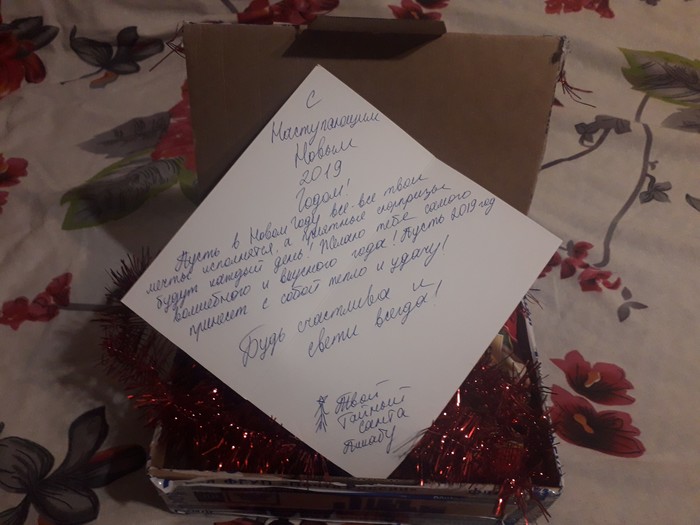 С
Наступающим
Новым
2019
Годом!
Пусть в Новом году все-все твои
мечты исполнятся, а приятные сюрпризы
будут каждый день! Желаю тебе самого
волшебного и вкусного года! Пусть 2019 год
принесет с собой тепло и удачу!
Будь счастлива и
свети всегда!
Твой
Тайный
Санта
Пикабу